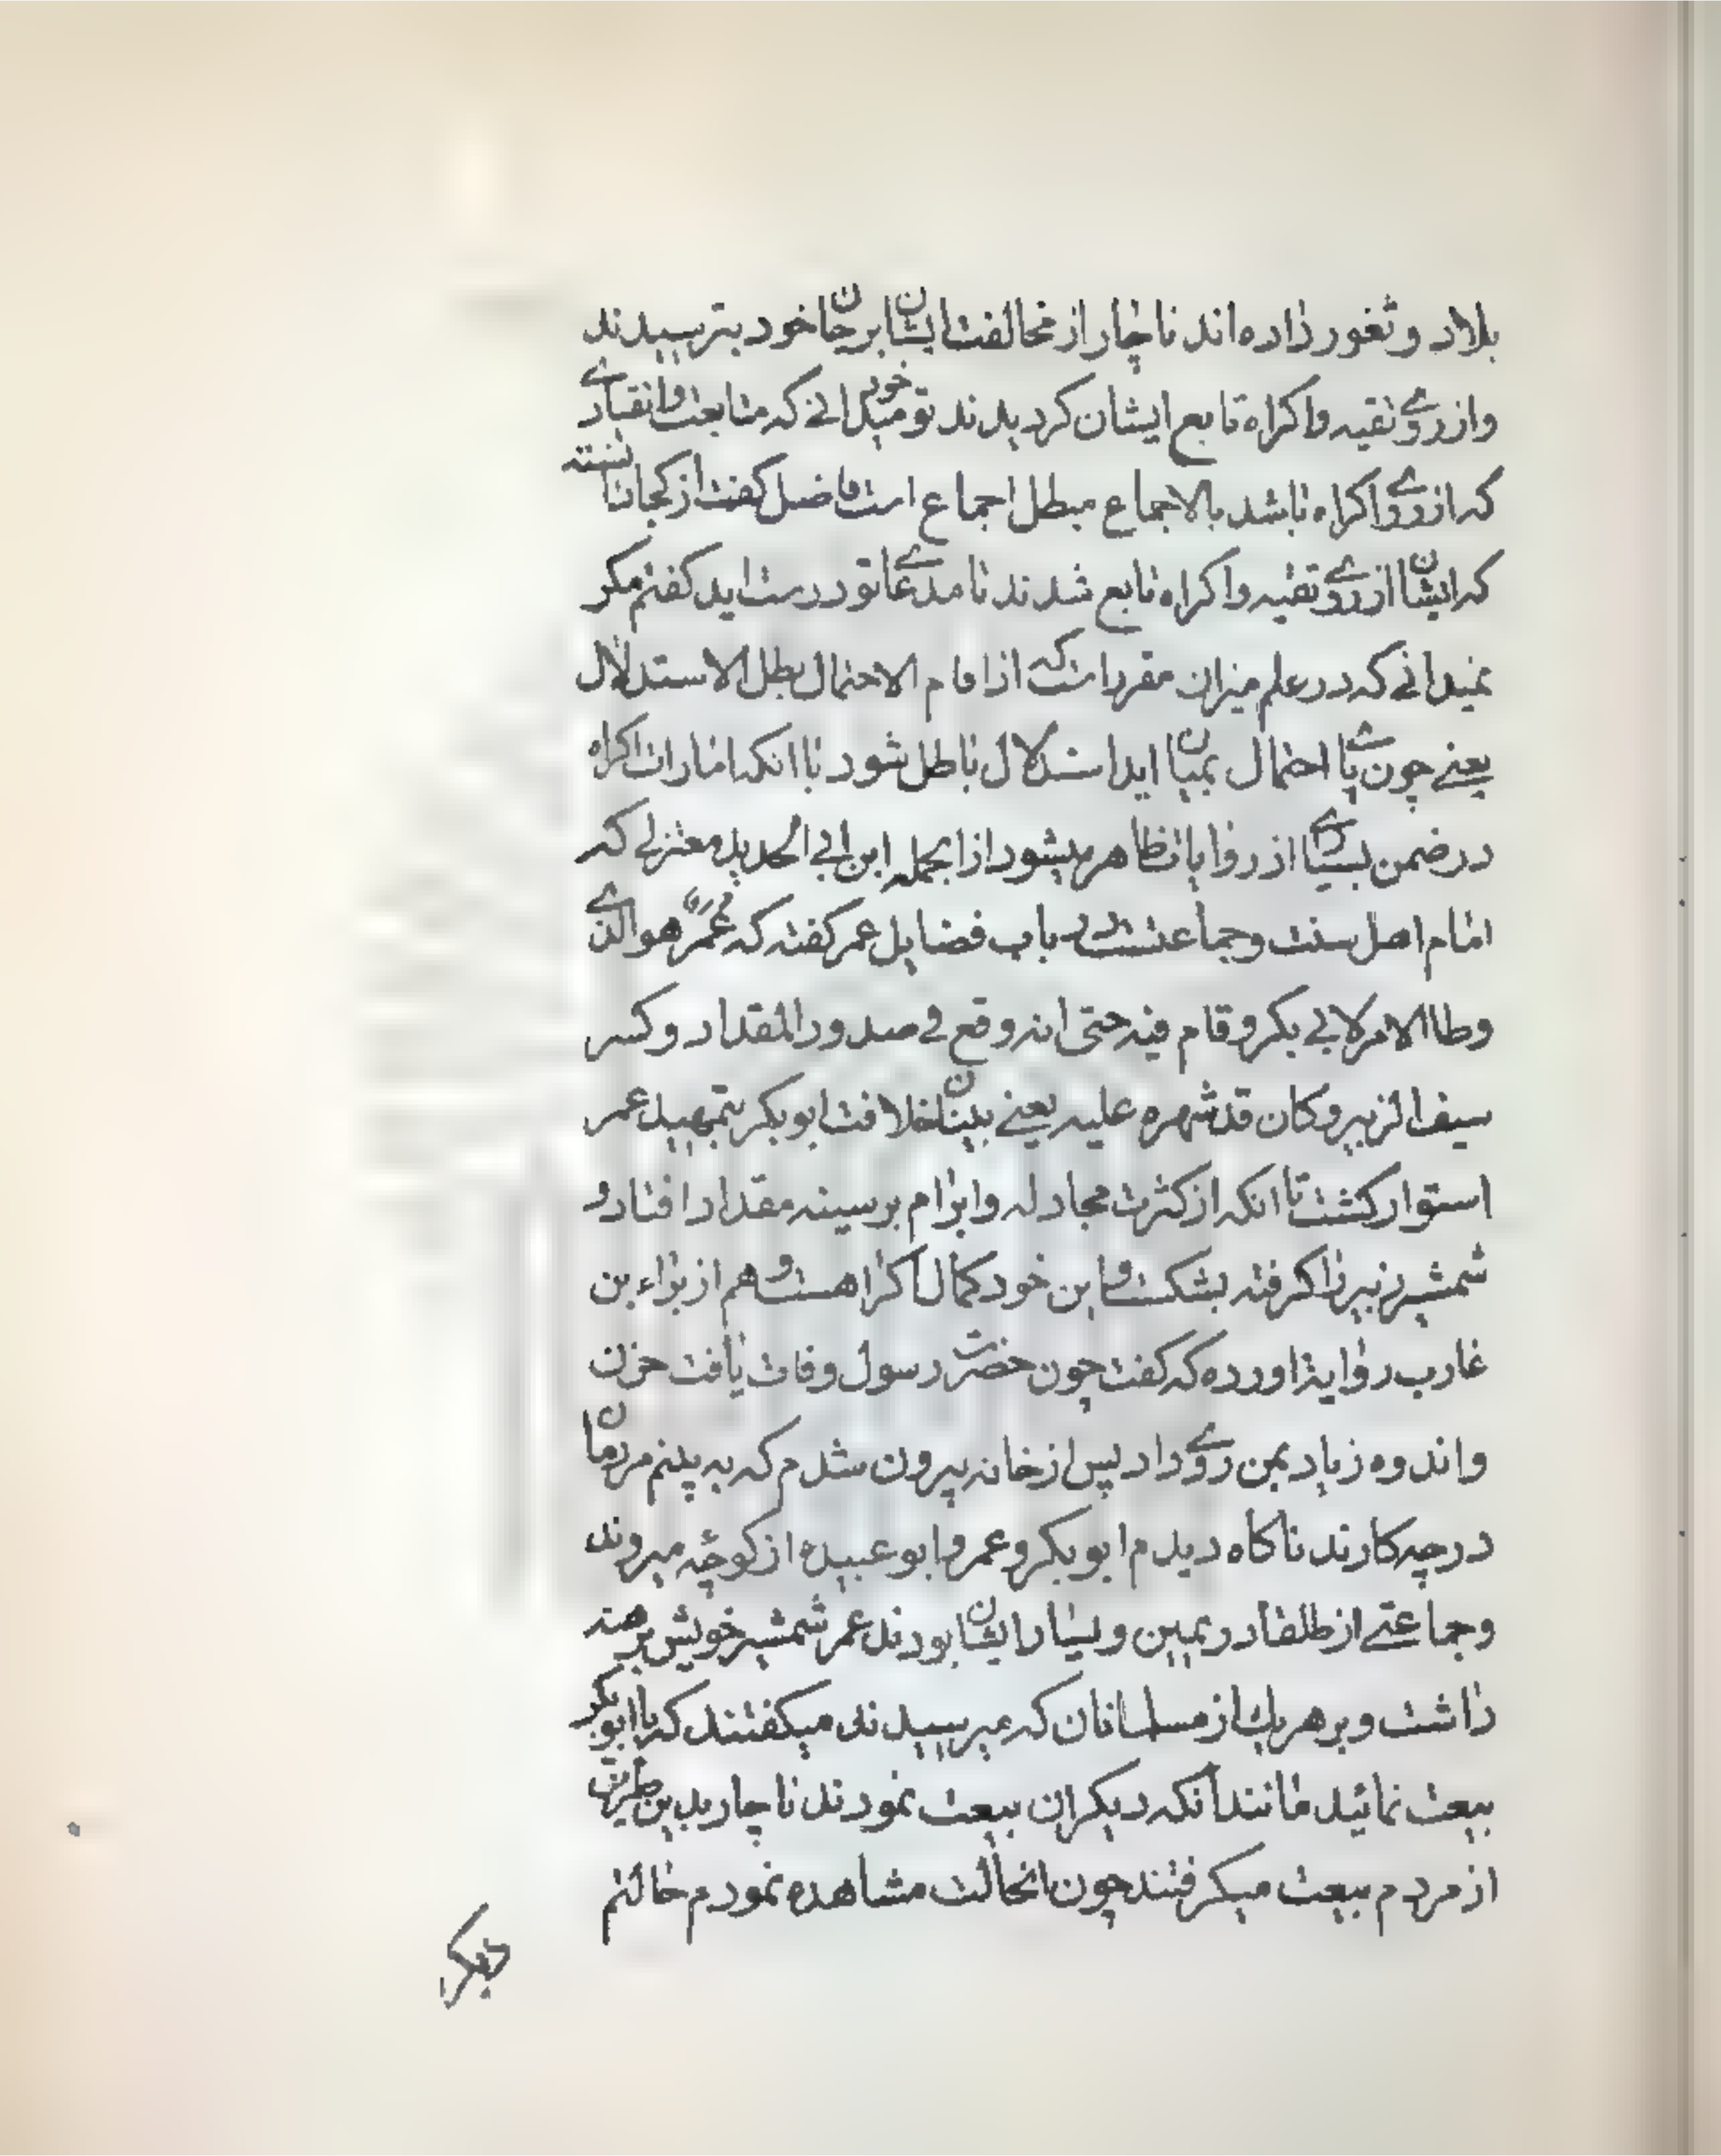 بلاد و ثغور داده‌اند ناچار از مخالفت ایشان بر جان خود بترسیدند
و از روی تقیه و اکراه تابع ایشان کردیدند تو خود میدانی که متابعت و انقیادی
که از روی اکراه باشد بالاجماع مبطل اجماع است فاضل کفت از کجا دانسته
که ایشان از روی تقیه و اکراه تابع شدند تا مدعای تو درست اید کفتم مکر
نمیدانی که در علم میزان مقرر است که اذا قام الاحتمال بطل الاستدلال
یعنی چون پای احتمال بمیان اید استدلال باطل شود با انکه امارات اکراه
در ضمن بسیاری از روایات ظاهر میشود از انجمله ابن ابی الحدید معتزلی که
امام اهل سنت و جماعتست در باب فضایل عمر کفته که عمر هو الذی
وطا الامر لابی بکر و قام فیه حتی انه وقع فی صدور المقداد و کسر
سیف الزبیر و کان قد شهره علیه یعنی بنیان خلافت ابوبکر بتمهید عمر
استوار کشت تا انکه از کثرت مجادله و ابرام بر سینه مقداد افتاد و
شمشیر زبیر را کرفته بشکست و این خود کمال اکراهست و هم از براء بن
عازب روایت اورده که کفت چون حضرت رسول وفات یافت حزن
و اندوه زیاد بمن روی داد پس از خانه بیرون شدم که به بینم مردمان
در چه کارند ناکاه دیدم ابوبکر و عمر و ابو عبیده از کوچه میروند
و جماعتی از طلقا در یمین و یسار ایشان بودند عمر شمشیر خویش برهنه
داشت و بر هر یک از مسلمانان که میرسیدند میکفتند که با ابوبکر
بیعت نمائید مانند انکه دیکران بیعت نمودند ناچار بدین طریق
از مردم بیعت میکرفتند چون انحالت مشاهده نمودم حالتم
دیکر